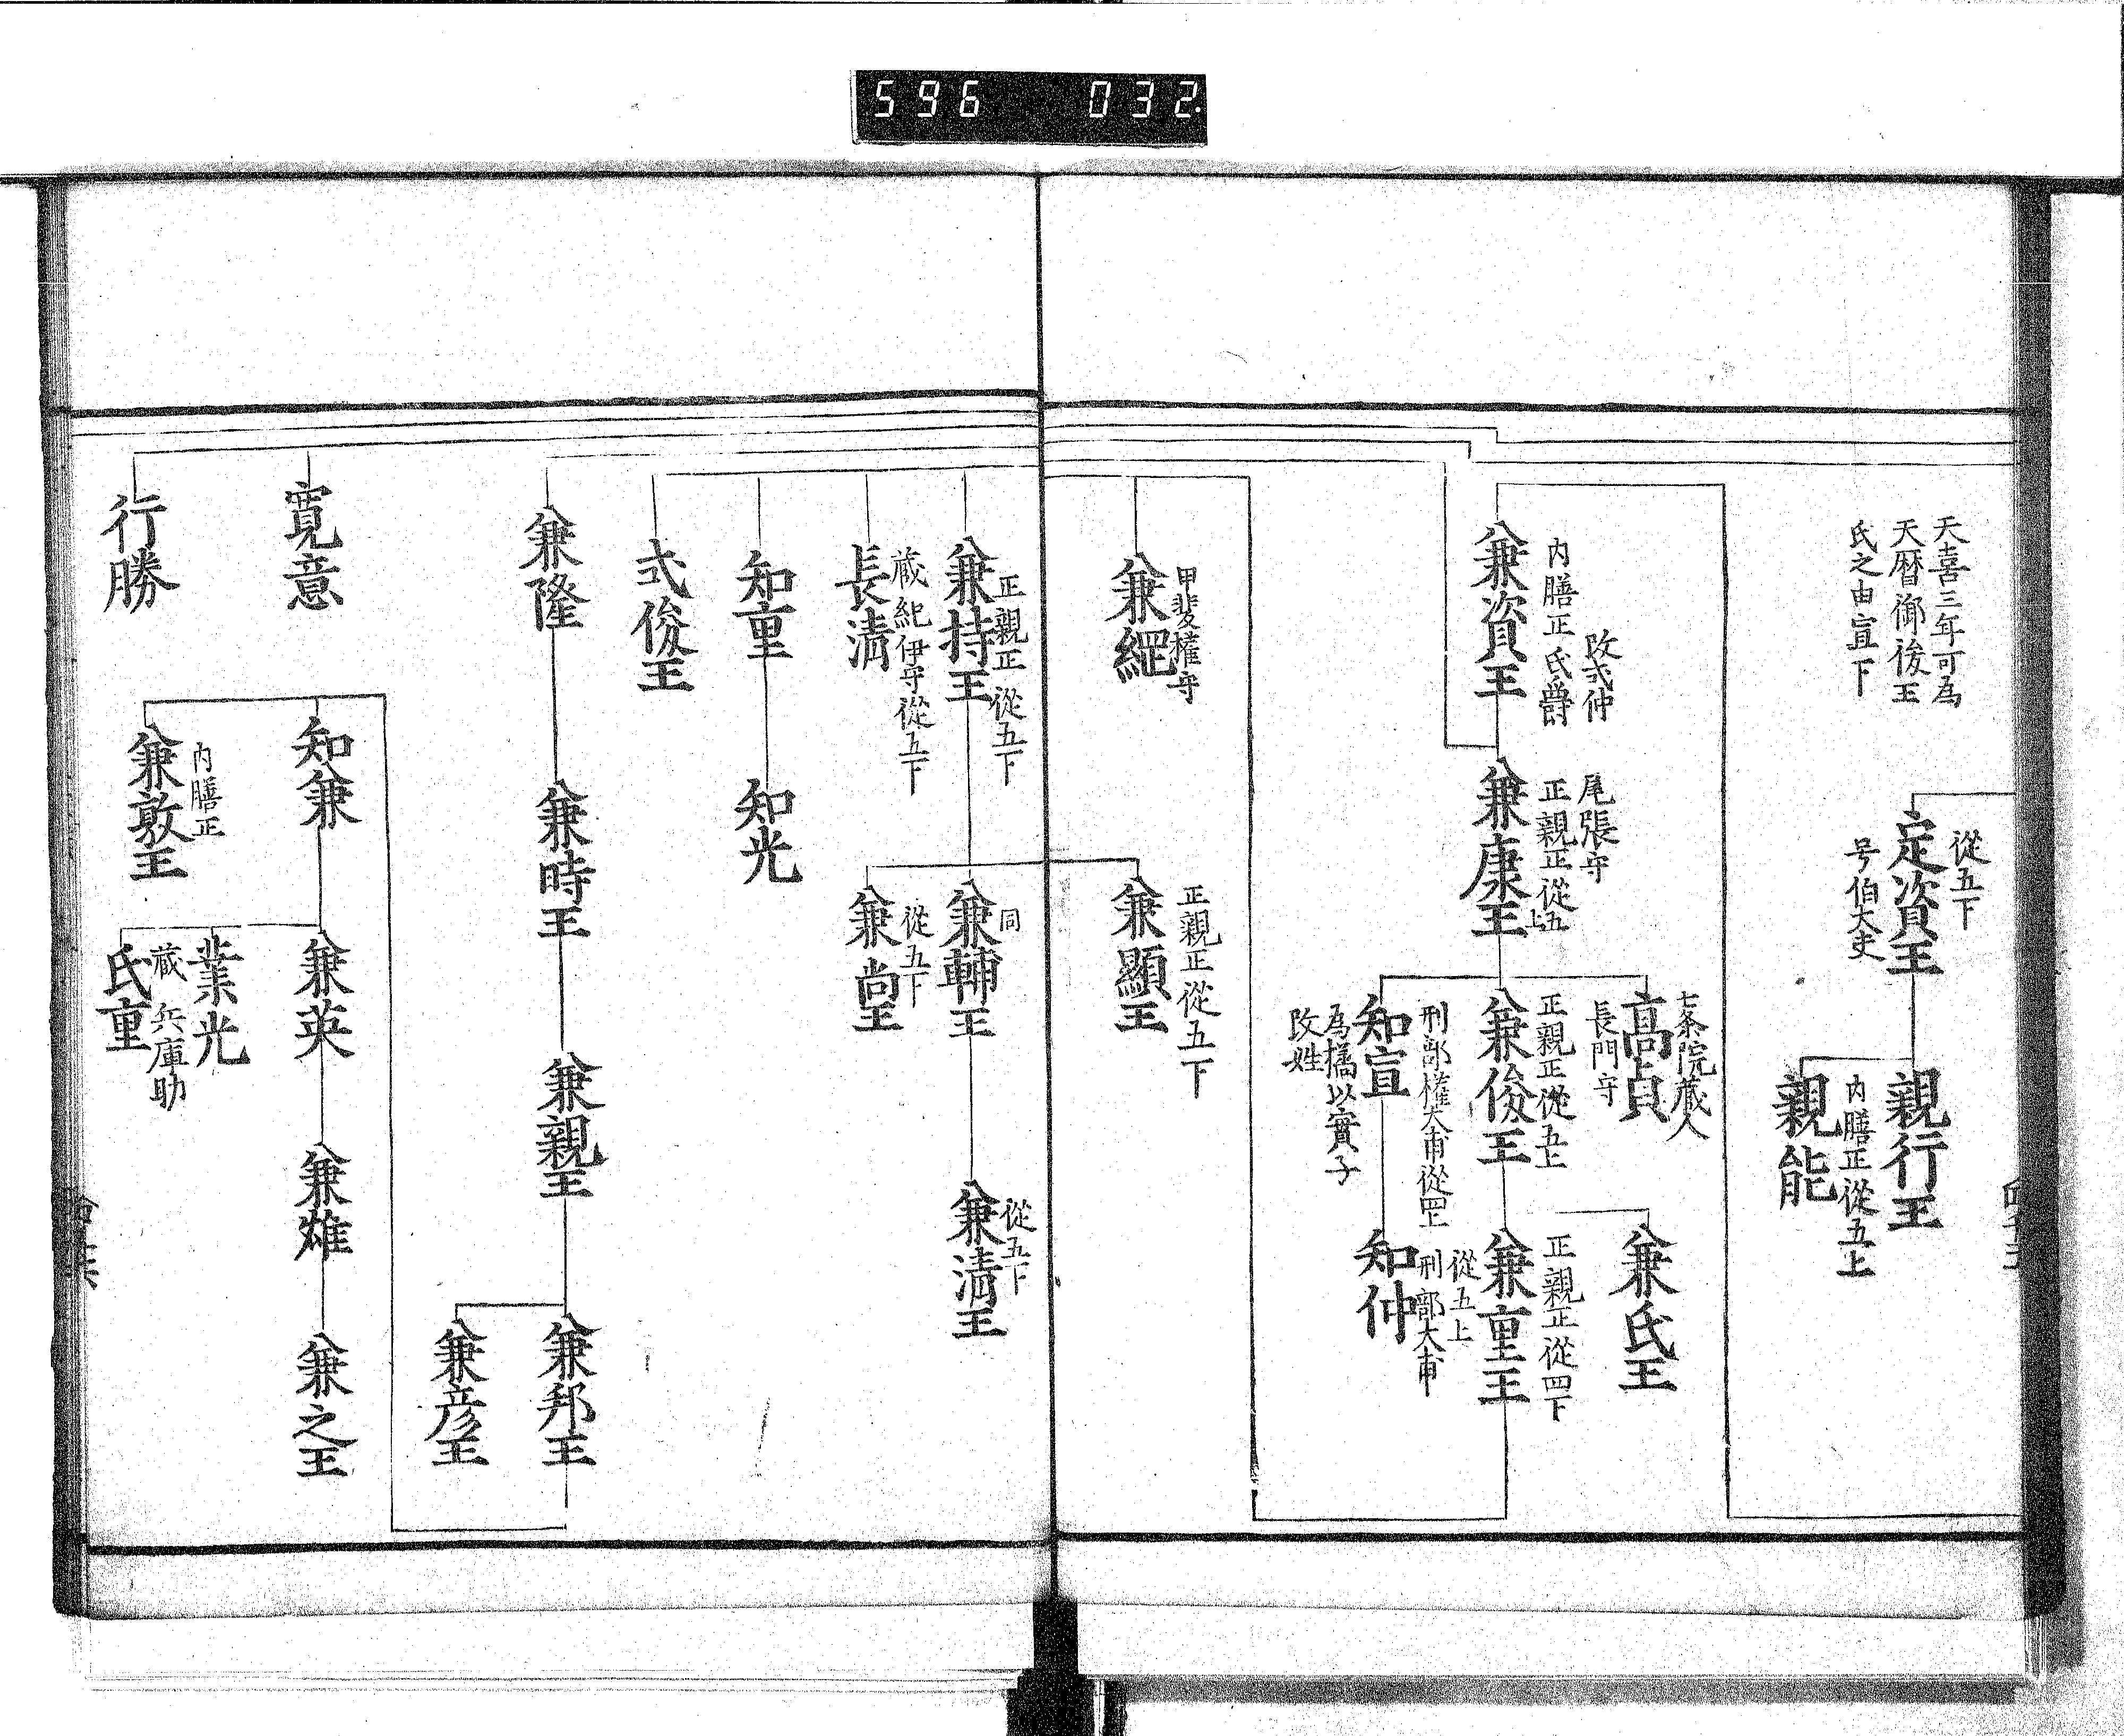 596 032
天喜三年可為
天暦御後王
氏之由宣下
從五下
定資王
号伯大夫
親行王
内膳正從五上
親能
改弐仲
内膳正氏爵
兼資王
尾張守
正親正從五上
兼康王
七条院蔵人
高貞
長門守
正親正從五上
兼俊王
刑部權大甫從四上
知宣
為橘以實子
改姓
兼氏王
正親正從四下
兼重王
從五上
刑部大甫
知仲
甲斐權守
兼綱
正親正從五下
兼顯王
正親正從五下
兼持王
蔵紀伊守從五下
長清
同
兼輔王
從五下
兼尚王
從五下
兼清王
知重
知光
弐俊王
兼隆
兼時王
兼親王
兼邦王
兼彦王
寛意
行勝
知兼
内膳正
兼敦王
兼英
業光
蔵 兵庫助
氏重
兼雄
兼之王